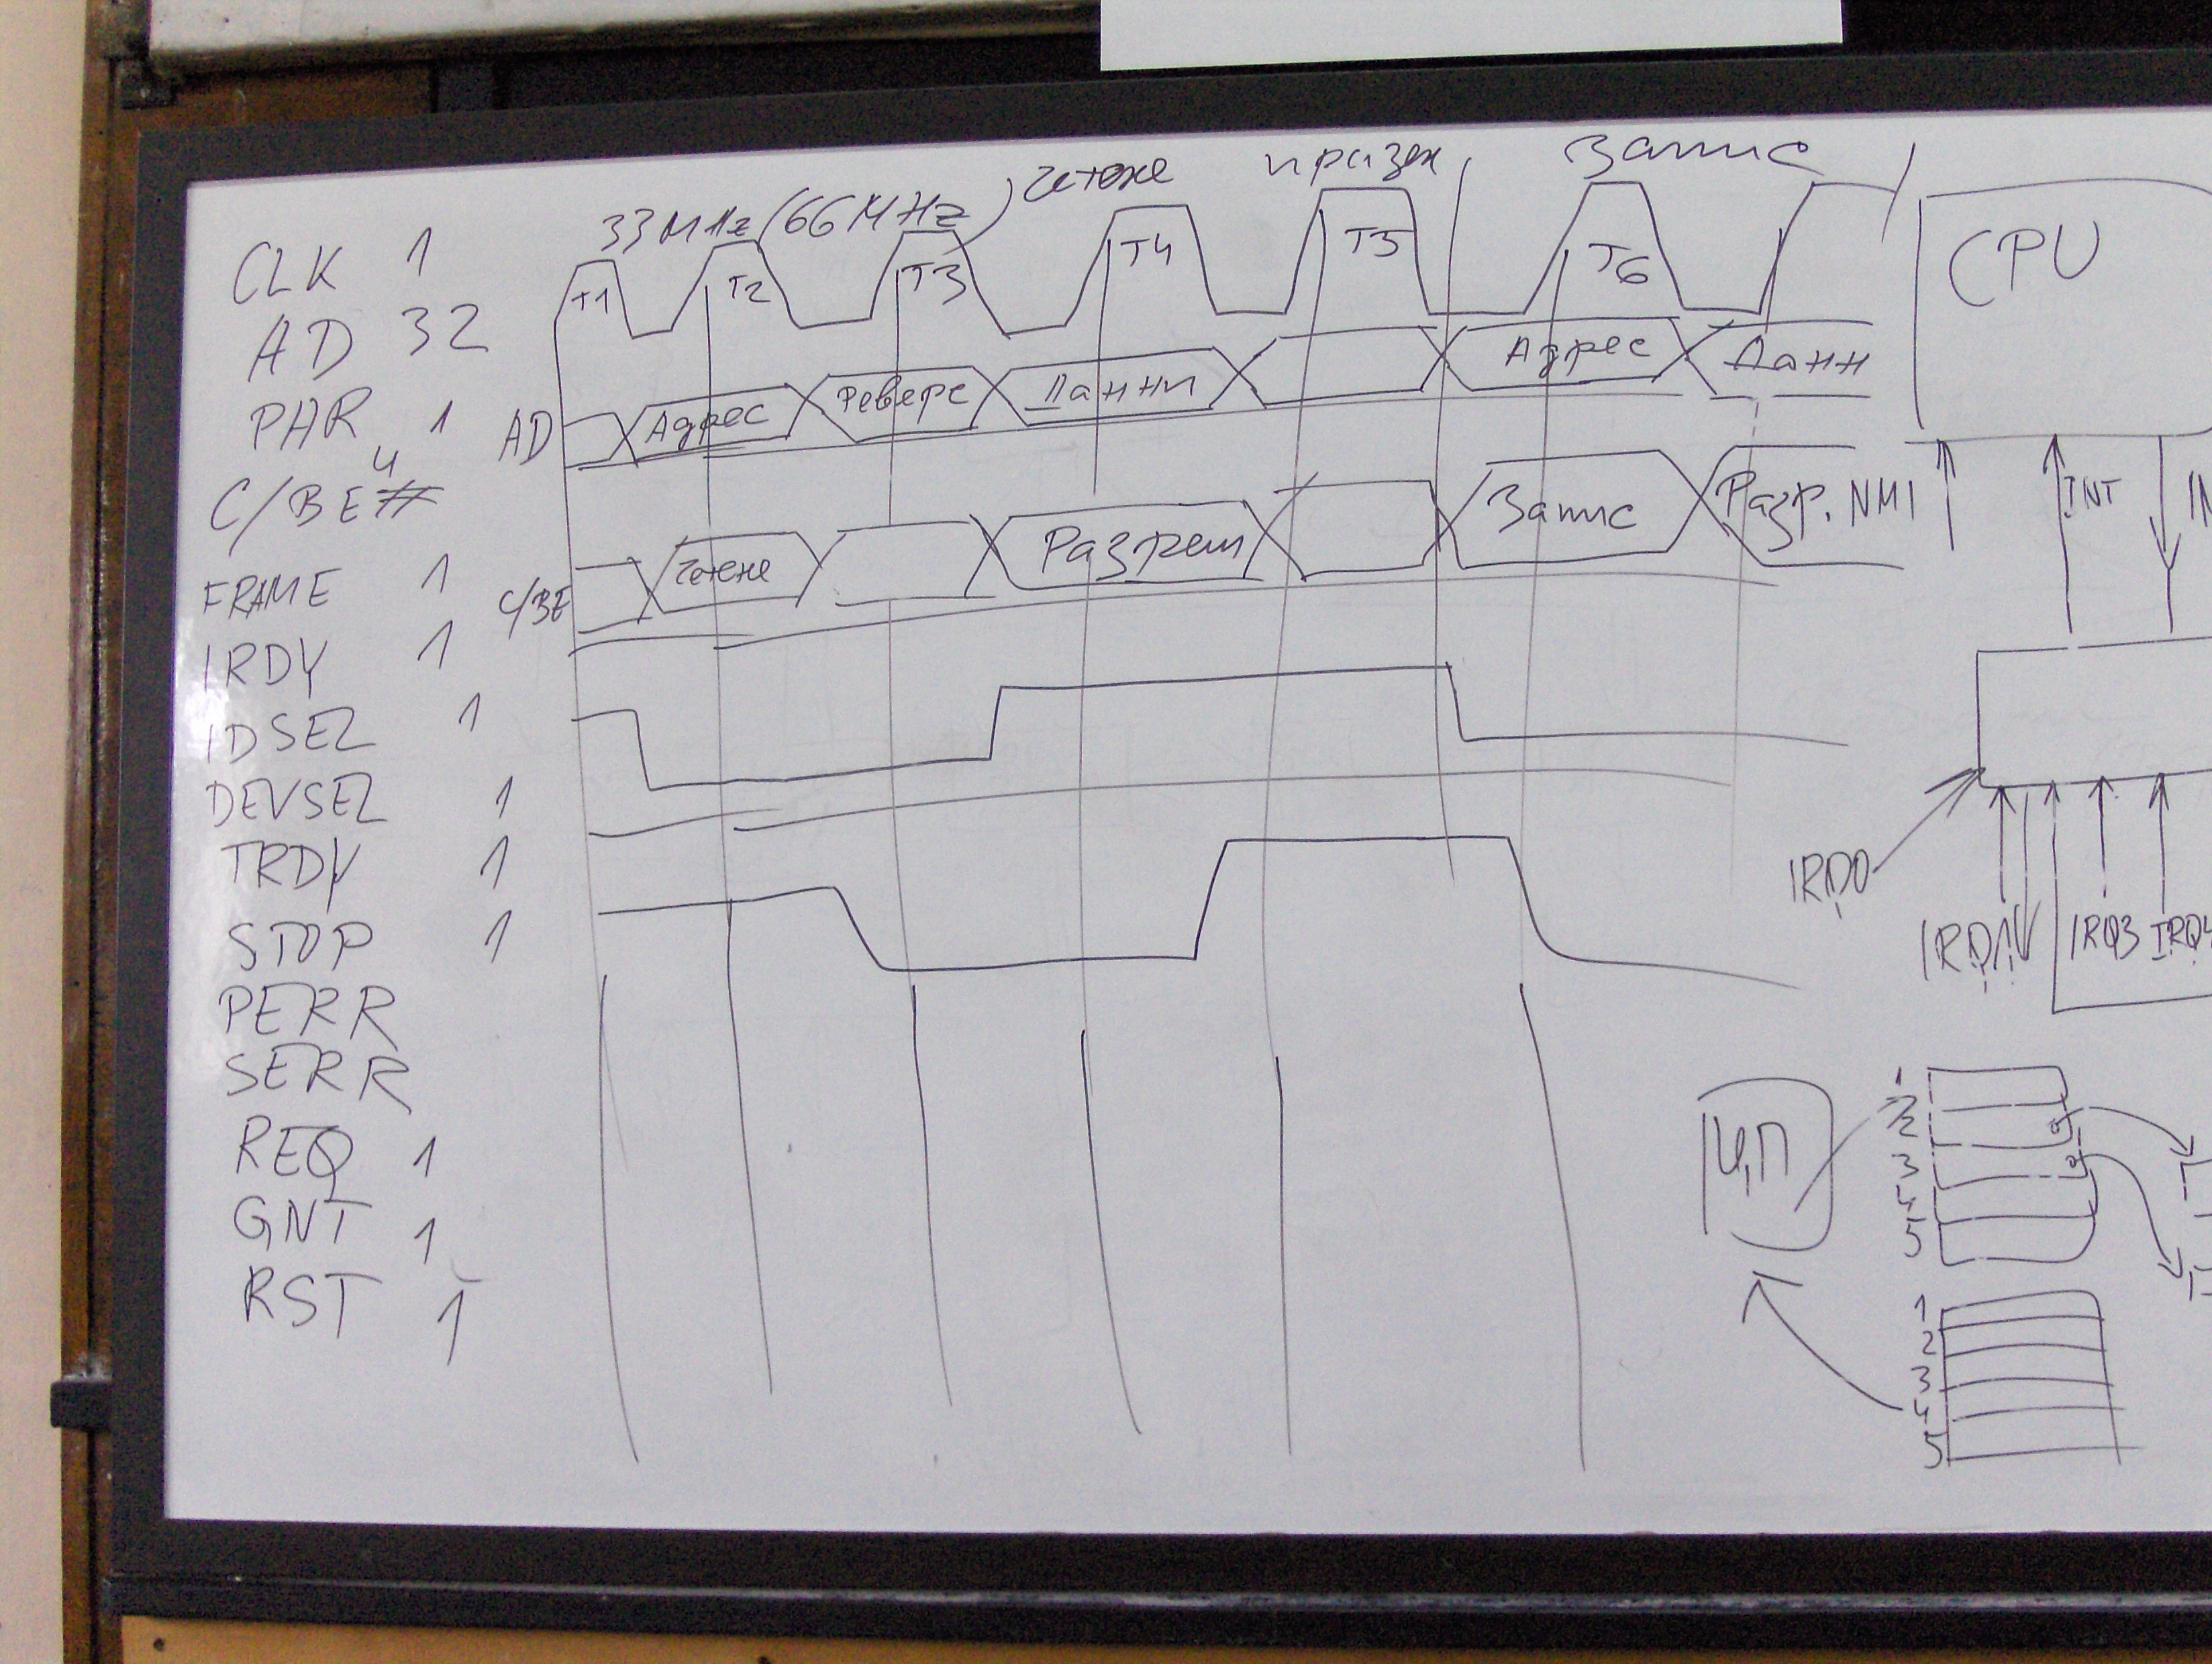 CLK 1
AD 32
PAR 1
C/BE# 4
FRAME 1
IRDY 1
IDSEL 1
DEVSEL 1
TRDY 1
STOP 1
PERR
SERR
REQ 1
GNT 1
RST 1
33 MHz (66 MHz) Четене празен Запис
T1 T2 T3 T4 T5 T6
AD Адрес Реверс Данни Адрес Данн
C/BE Четене Разреш Запис Разр.
CPU
NMI INT
IRQ0
IRQ1 IRQ3 IRQ4
ЦП
1
2
3
4
5
1
2
3
4
5